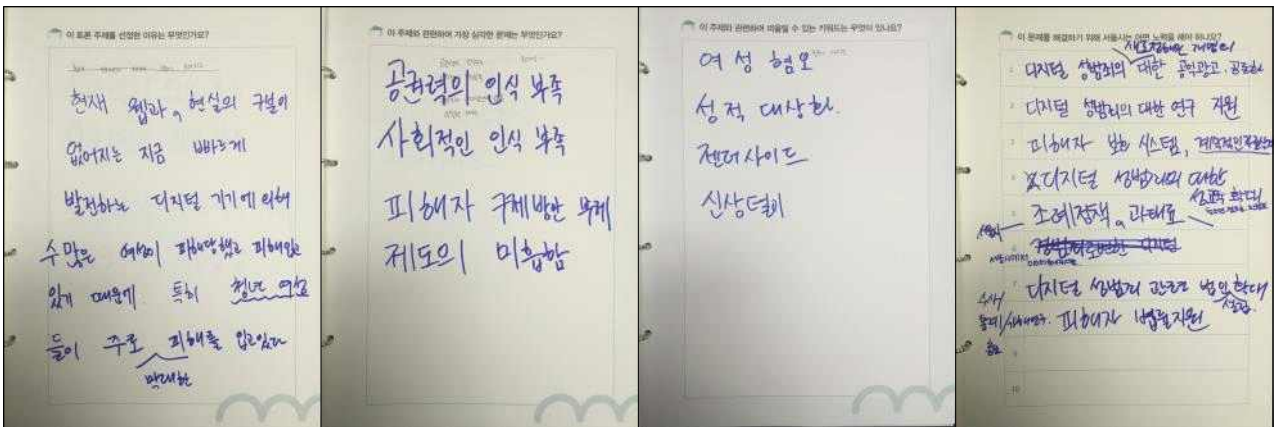 이 토론 주제를 선정한 이유는 무엇인가요?
현재 웹과, 현실의 구별이
없어지는 지금 빠르게
발전하는 디지털 기기에 의해
수많은 여성이 피해당했고 피해입고
있기 때문에. 특히 청년 여성
들이 주로 피해를 입고있다
막대한
이 주제와 관련하여 가장 심각한 문제는 무엇인가요?
공권력의 인식 부족
사회적인 인식 부족
피해자 구제방안 부재
제도의 미흡함
이 주제와 관련하여 떠올릴 수 있는 키워드는 무엇이 있나요?
여성 혐오
성적 대상화.
젠더사이드
신상털이
이 문제를 해결하기 위해 서울시는 어떤 노력을 해야 하나요?
1 디지털 성범죄의 대한 공익광고.
2 디지털 성범죄의 대한 연구 지원
피해자 보호 시스템,
디지털 성범죄의 대한
조례정책, 과태료
디지털
7 디지털 성범죄 관련 법안 확대
피해자 법률지원
9
10